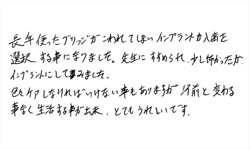 長年使ったブリッジがこわれてしまいインプラントか入歯を
選択する事になりました。先生にすすめられ、少し怖かったが
インプラントにして みました。
色々ケアしなければいけない事もありますが以前と変わる
事なく生活する事が出来、とてもうれしいです。